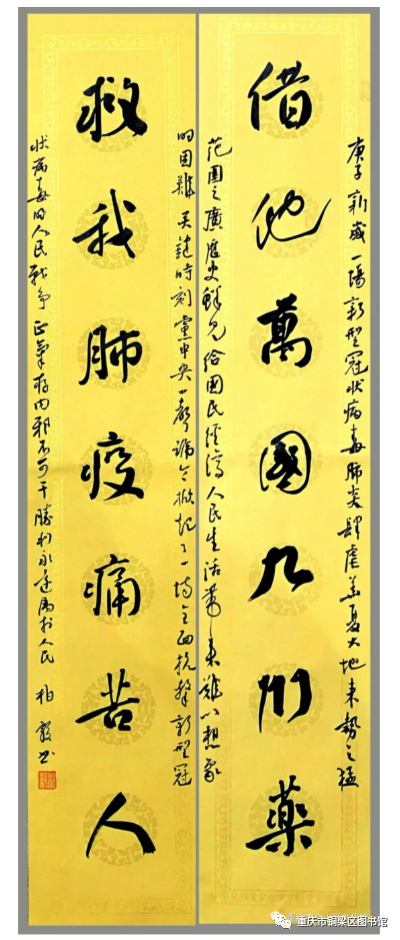 借他萬國九州藥
救我肺疫痛苦人
庚子新歲一場新型冠狀病毒肺炎肆虐華夏大地来勢之猛
范圍之廣歷史鲜見给國民经濟人民生活带来難以想象
的困難 关键時刻黨中央一聲號令掀起了一場全面抗擊新型冠
状病毒的人民戰争 正氣存内邪不可干 勝利永遠属於人民
重庆市铜梁区图书馆